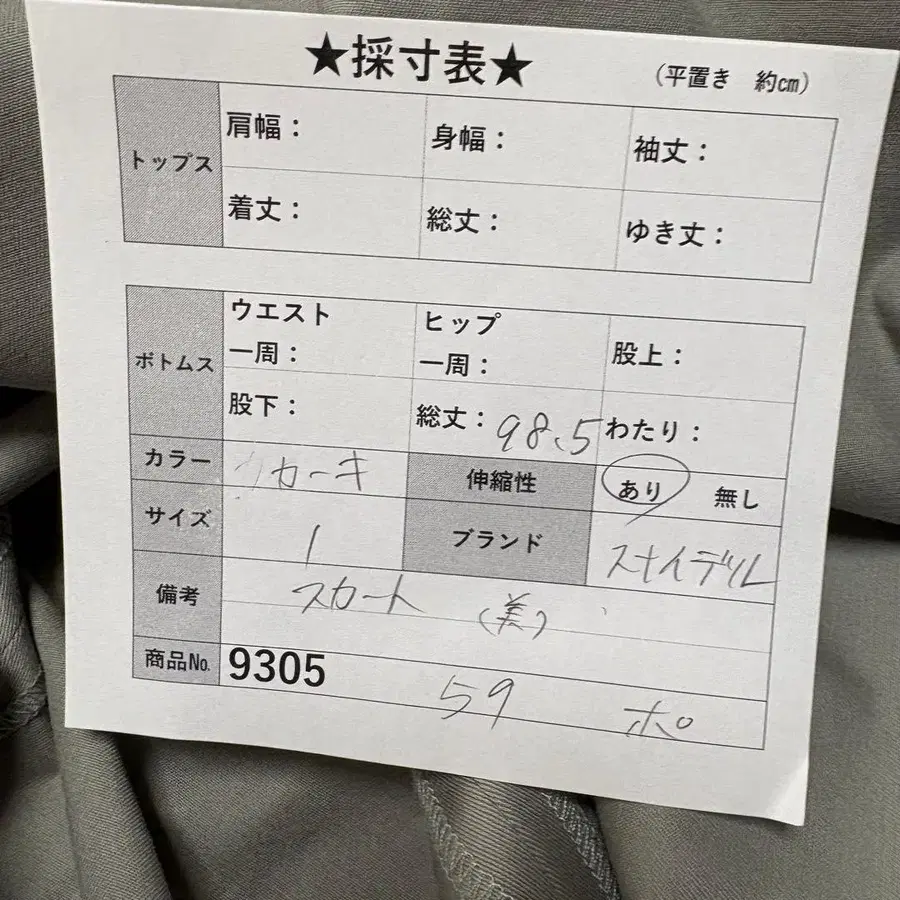 ★採寸表★ (平置き 約㎝)
トップス 肩幅： 身幅： 袖丈：
着丈： 総丈： ゆき丈：
ボトムス ウエスト一周： ヒップ一周： 股上：
股下： 総丈：98.5 わたり：
カラー カーキ 伸縮性 あり 無し
サイズ 1 ブランド スナイデル
備考 スカート (美)
商品No. 9305
59 ポ